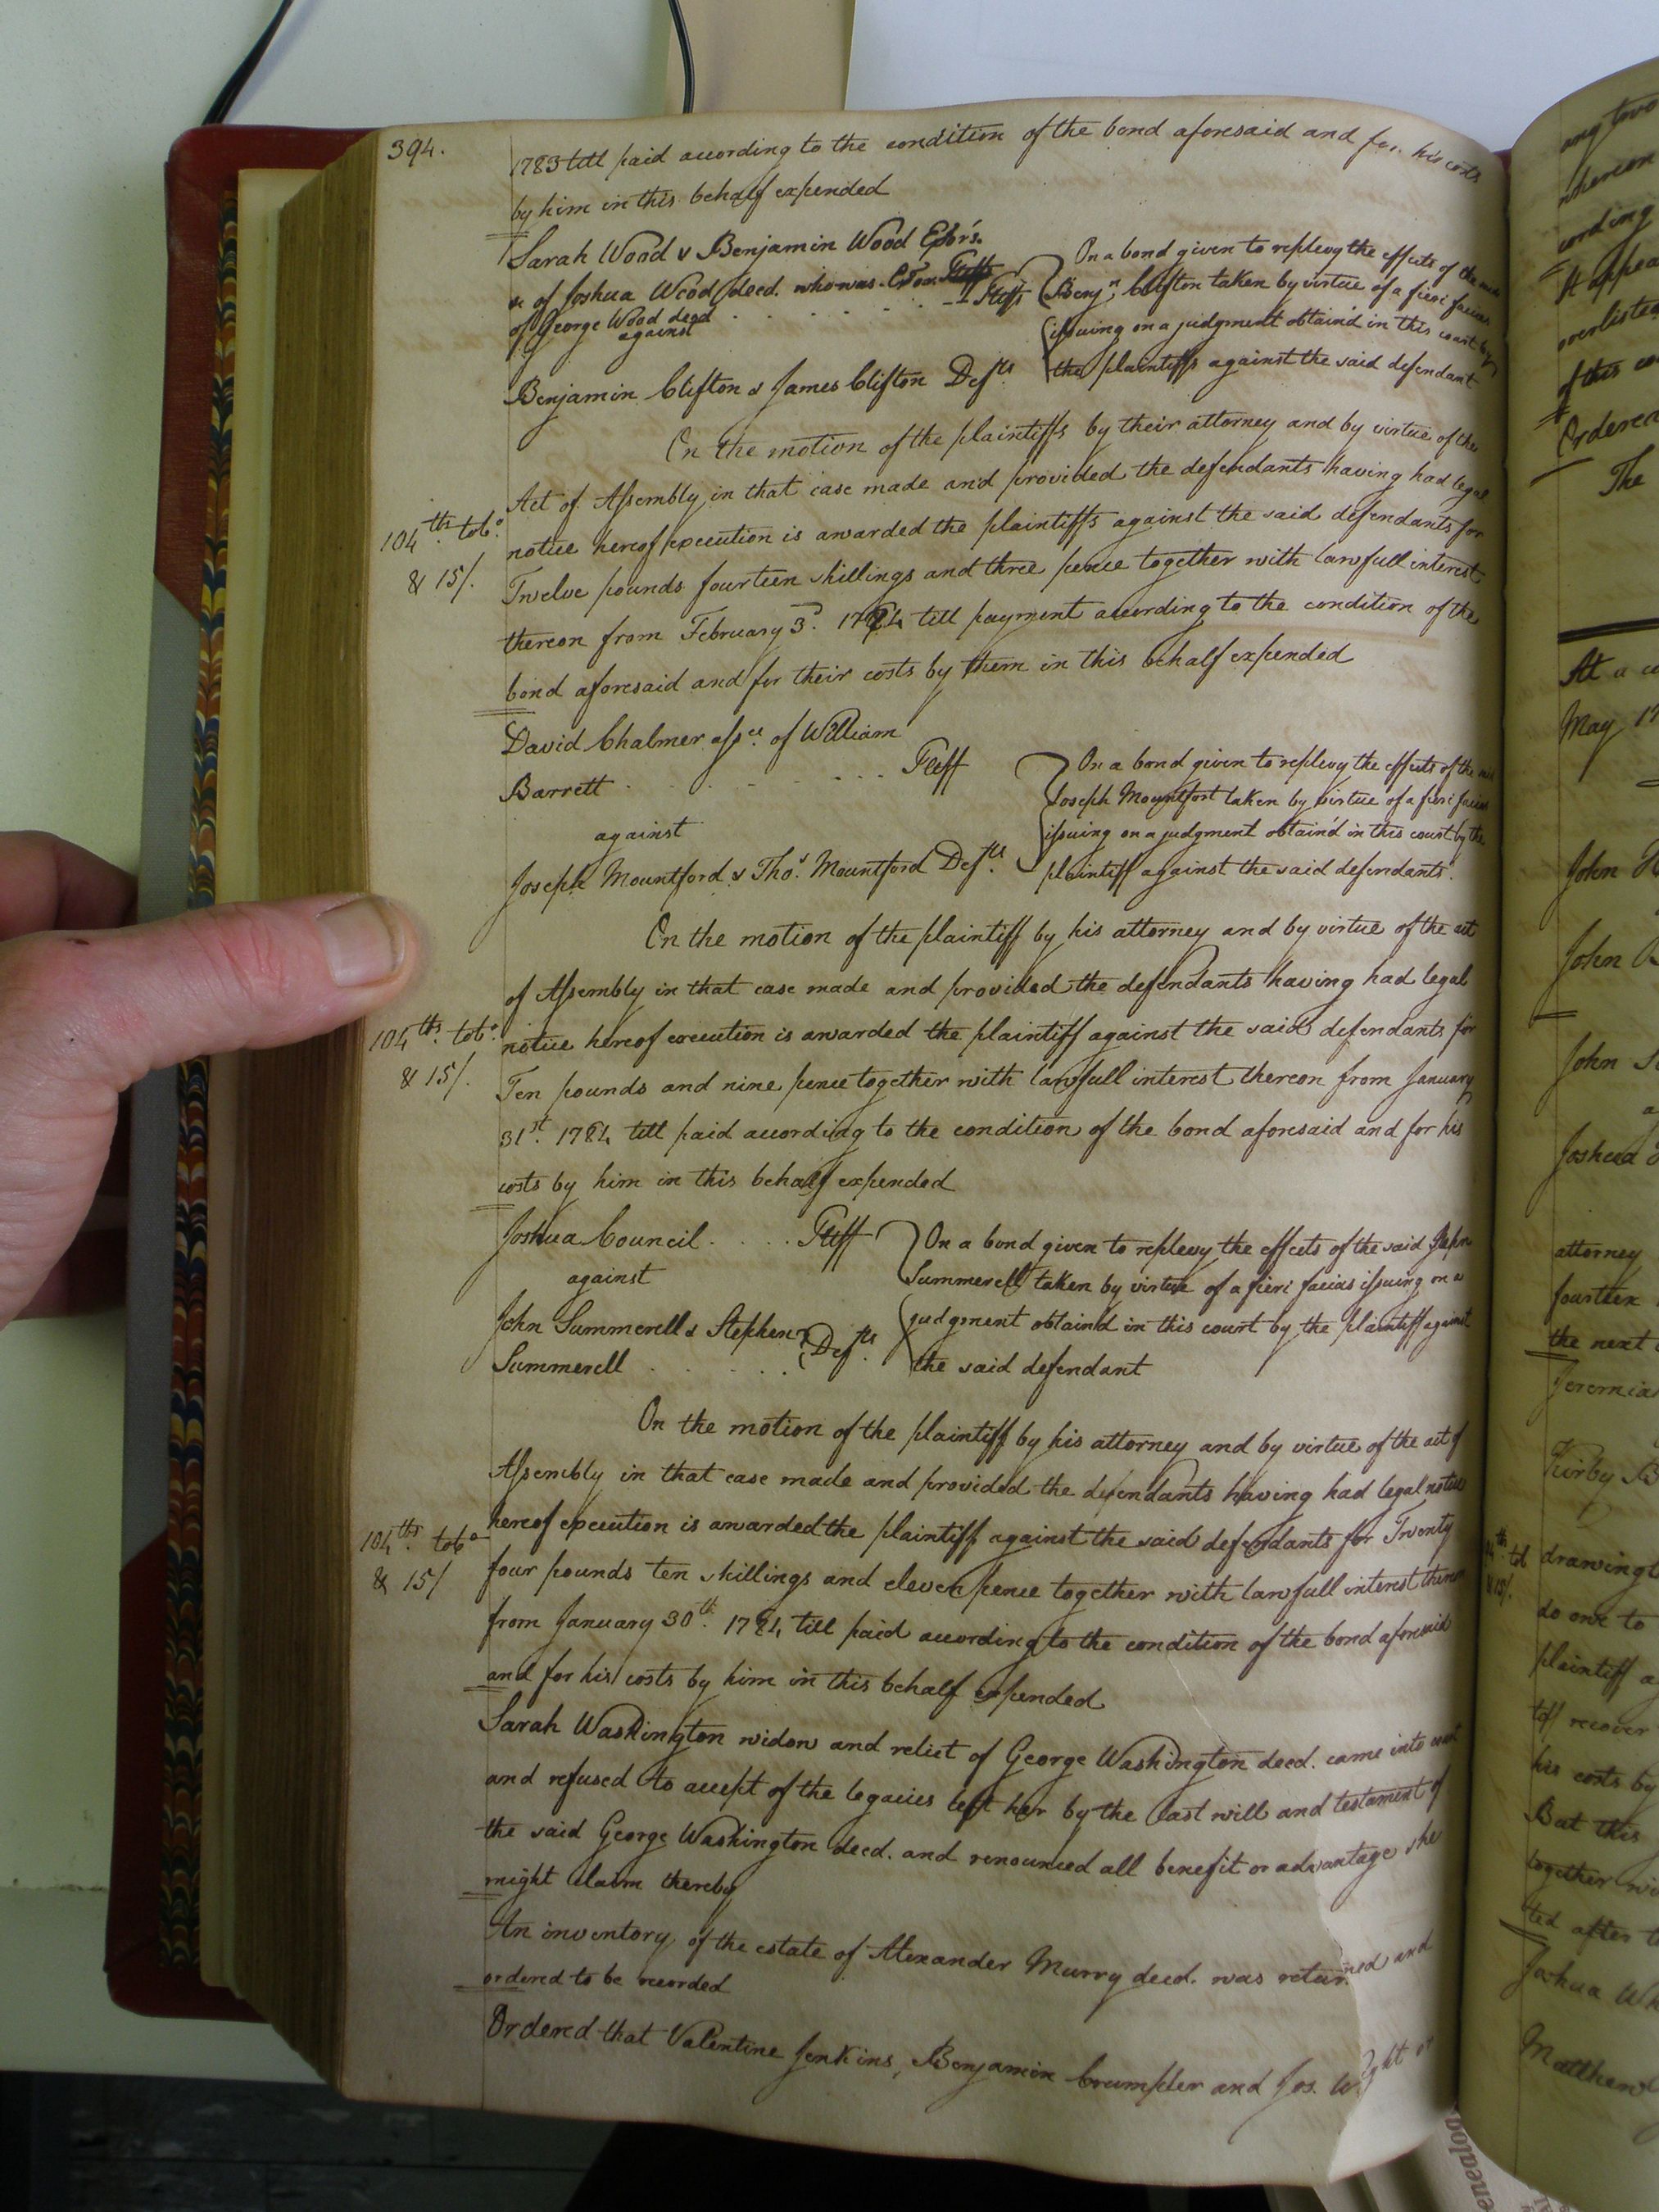 394.
1783 till paid according to the condition of the bond aforesaid and for his costs
by him in this behalf expended
Sarah Wood & Benjamin Wood Exors.
&c of Joshua Wood decd. who was Exor.
of George Wood decd . . . . . . Pltffs
against
Benjamin Clifton & James Clifton Defts
On a bond given to replevy the effects of the said
Benjn. Clifton taken by virtue of a fieri facias
issuing on a judgment obtain'd in this court by
the plaintiffs against the said defendant
On the motion of the plaintiffs by their attorney and by virtue of the
Act of Assembly in that case made and provided the defendants having had legal
104 lbs. tobo.
& 15/.
notice hereof execution is awarded the plaintiffs against the said defendants for
Twelve pounds fourteen shillings and three pence together with lawfull interest
thereon from February 3d. 1784 till payment according to the condition of the
bond aforesaid and for their costs by them in this behalf expended
David Chalmer assee. of William
Barrett . . . . . . Pltff
against
Joseph Mountford & Thos. Mountford Defts.
On a bond given to replevy the effects of the said
Joseph Mountfort taken by virtue of a fieri facias
issuing on a judgment obtain'd in this court by the
plaintiff against the said defendants.
On the motion of the plaintiff by his attorney and by virtue of the act
of Assembly in that case made and provided the defendants having had legal
104 lbs. tobo.
& 15/.
notice hereof execution is awarded the plaintiff against the said defendants for
Ten pounds and nine pence together with lawfull interest thereon from January
31st. 1784 till paid according to the condition of the bond aforesaid and for his
costs by him in this behalf expended
Joshua Council . . . . Pltff
against
John Summerell & Stephen
Summerell . . . . Defts.
On a bond given to replevy the effects of the said
Summerell taken by virtue of a fieri facias issuing on a
judgment obtain'd in this court by the plaintiff against
the said defendant
On the motion of the plaintiff by his attorney and by virtue of the act of
Assembly in that case made and provided the defendants having had legal notice
104 lbs. tobo
& 15/
hereof execution is awarded the plaintiff against the said defendants for Twenty
four pounds ten shillings and eleven pence together with lawfull interest thereon
from January 30th. 1784 till paid according to the condition of the bond aforesaid
and for his costs by him in this behalf expended
Sarah Washington widow and relict of George Washington decd. came into court
and refused to accept of the legacies left her by the last will and testament of
the said George Washington decd. and renounced all benefit or advantage she
might claim thereby
An inventory of the estate of Alexander Murry decd. was returned and
ordered to be recorded
Ordered that Valentine Jenkins, Benjamin Crumpler and Jos. Wright or
Ordered
The
At a
May
John
John
John
Joshua
attorney
fourteen
the next
Kirby
do one to
plaintiff
recover
his costs by
But this
together
after
Joshua